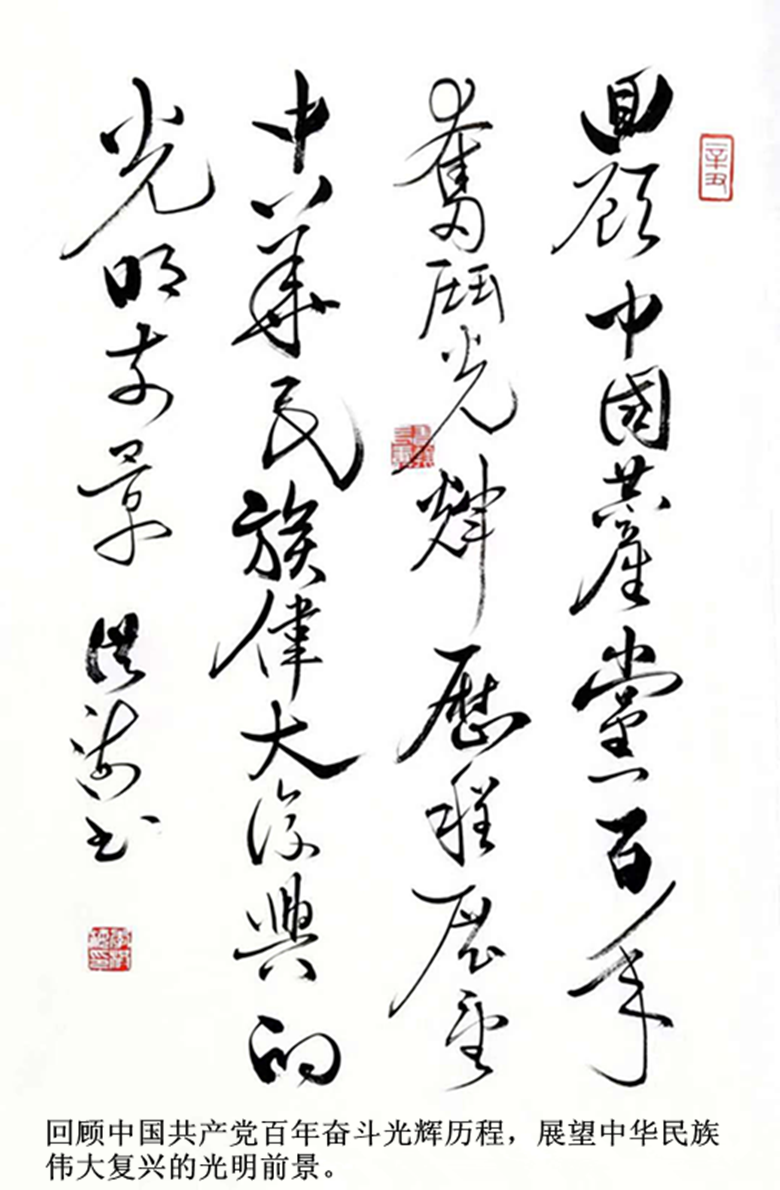 辛丑
回顾中國共產黨百年
奮鬥光辉歷程展望
中華民族偉大復興的
光明前景 书
回顾中国共产党百年奋斗光辉历程，展望中华民族
伟大复兴的光明前景。